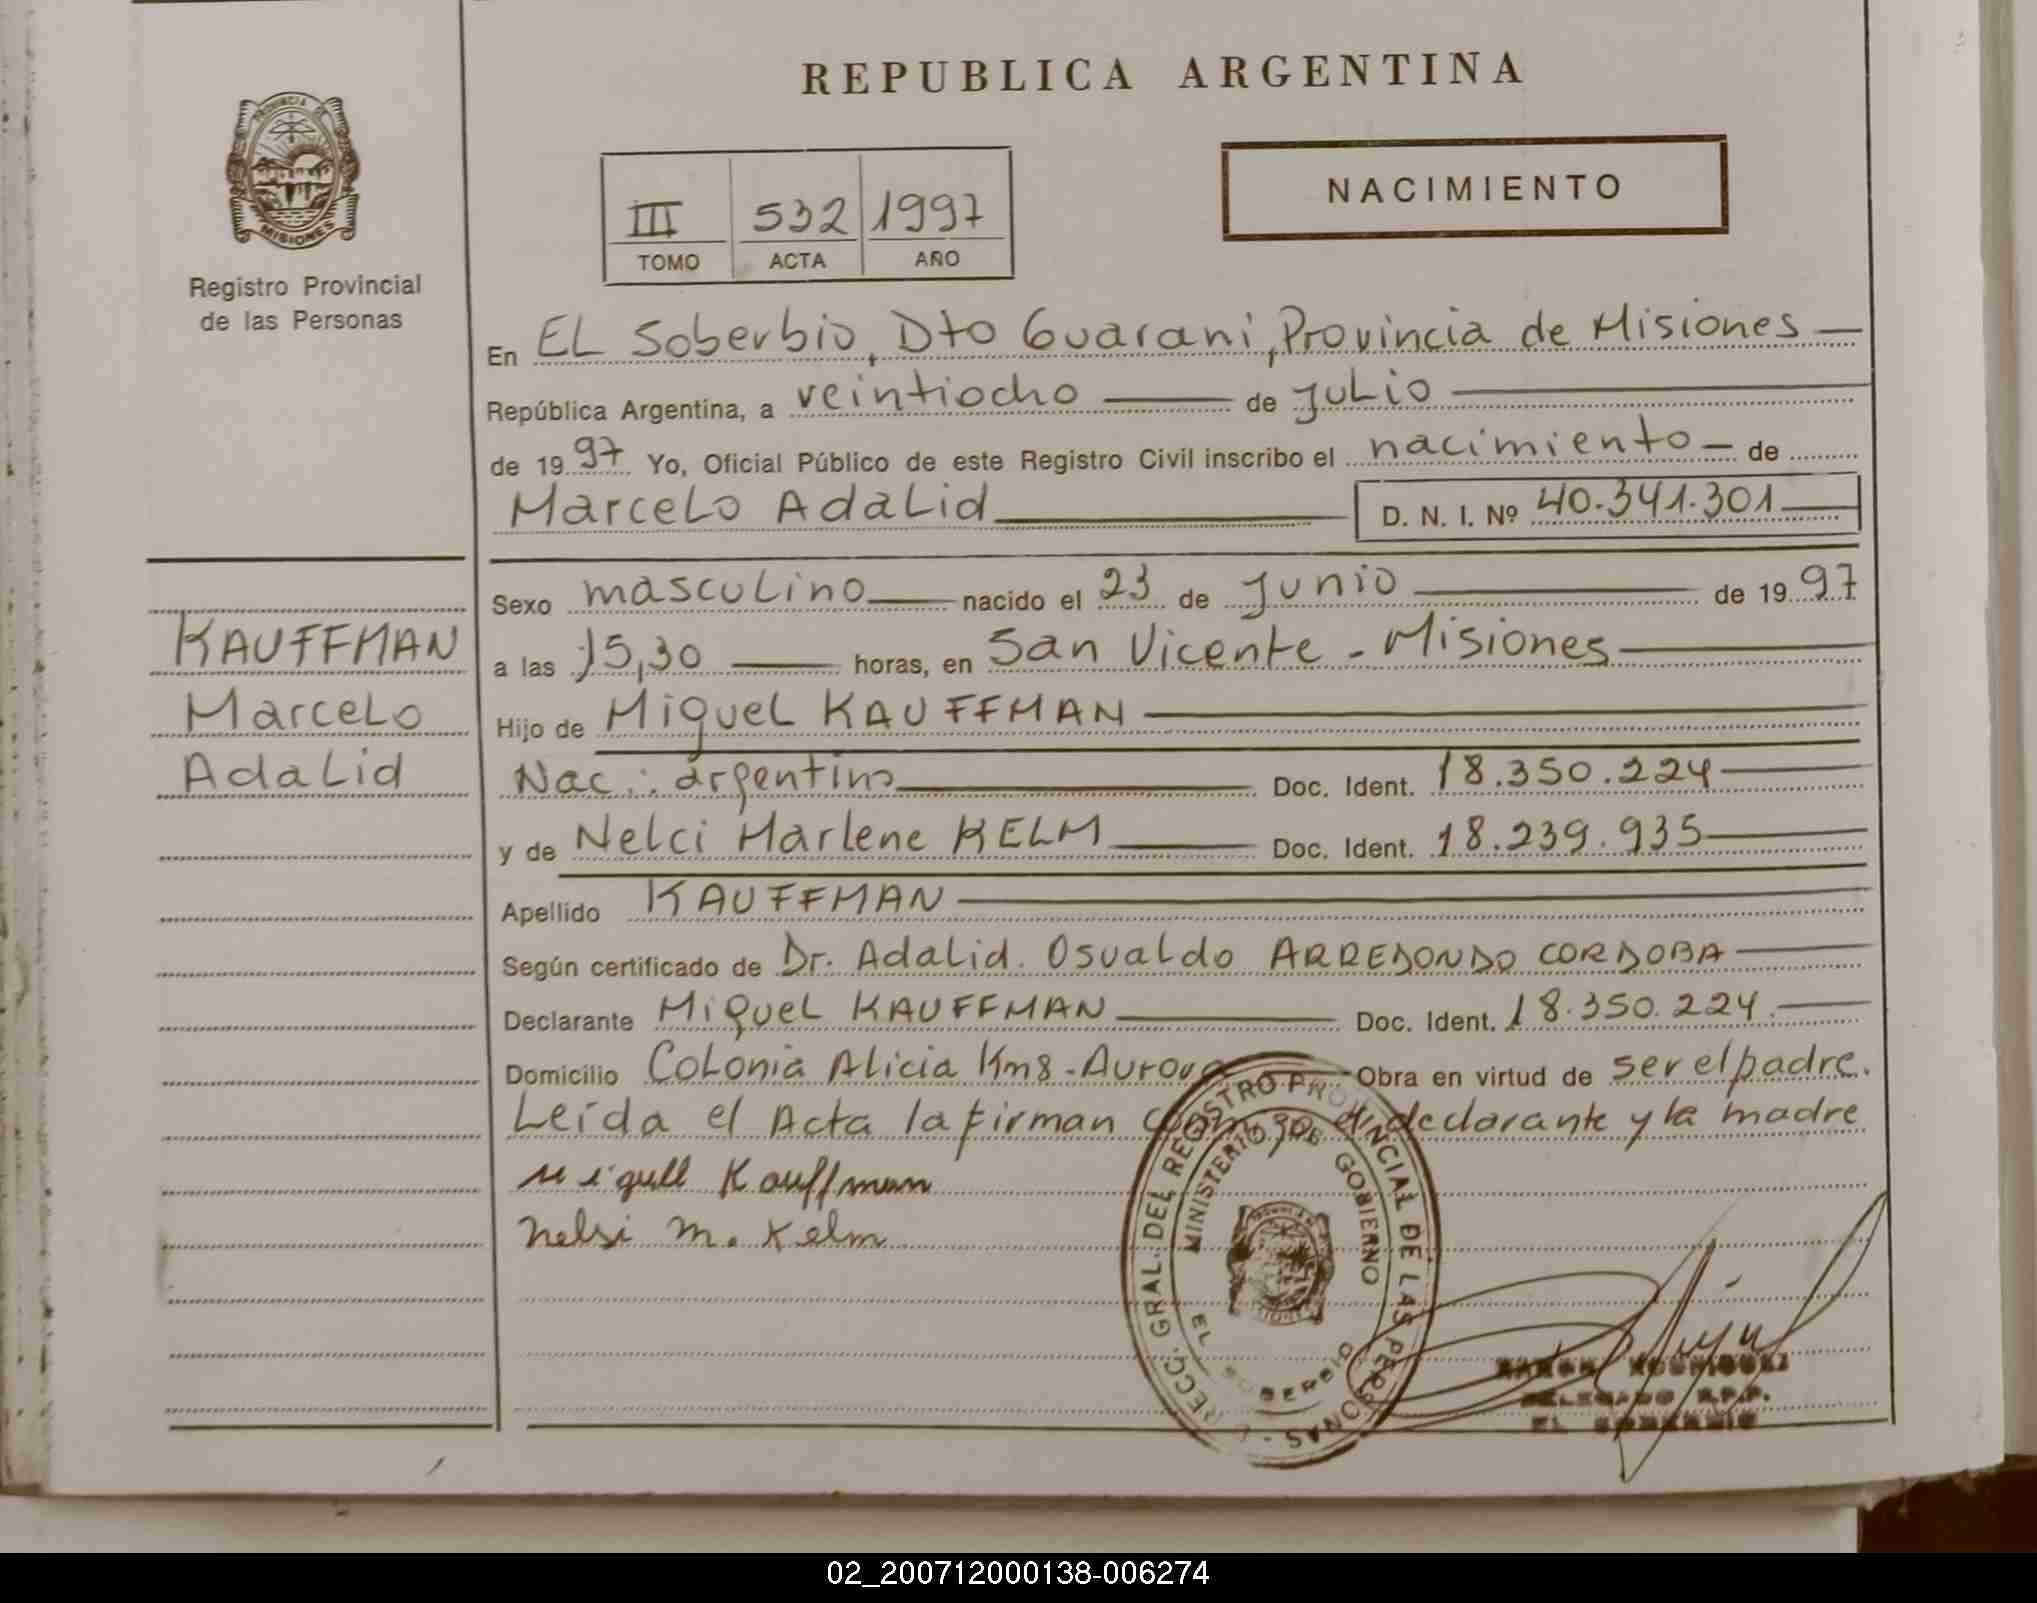 REPUBLICA ARGENTINA
PROVINCIA DE
MISIONES
Registro Provincial
de las Personas
III 532 1997
TOMO ACTA AÑO
NACIMIENTO
En EL Soberbio, Dto Guarani, Provincia de Misiones
República Argentina, a veintiocho de Julio
de 1997 Yo, Oficial Público de este Registro Civil inscribo el nacimiento de
Marcelo Adalid D. N. I. Nº 40.341.301
Sexo masculino nacido el 23 de Junio de 1997
a las 15,30 horas, en San Vicente - Misiones
Hijo de Miguel KAUFFMAN
Nac.: argentino Doc. Ident. 18.350.224
y de Nelci Marlene KELM Doc. Ident. 18.239.935
Apellido KAUFFMAN
Según certificado de Dr. Adalid. Osvaldo ARREDONDO CORDOBA
Declarante Miguel KAUFFMAN Doc. Ident. 18.350.224
Domicilio Colonia Alicia Km8 - Aurora Obra en virtud de ser el padre.
Leída el Acta la firman declarante y la madre
Miguell Kauffman
Nelsi M. Kelm
KAUFFMAN
Marcelo
Adalid
DIRECC. GRAL. DEL REGISTRO PROVINCIAL DE LAS PERSONAS
MINISTERIO DE GOBIERNO
EL SOBERBIO
DELEGADO R.P.P.
EL SOBERBIO
02_200712000138-006274